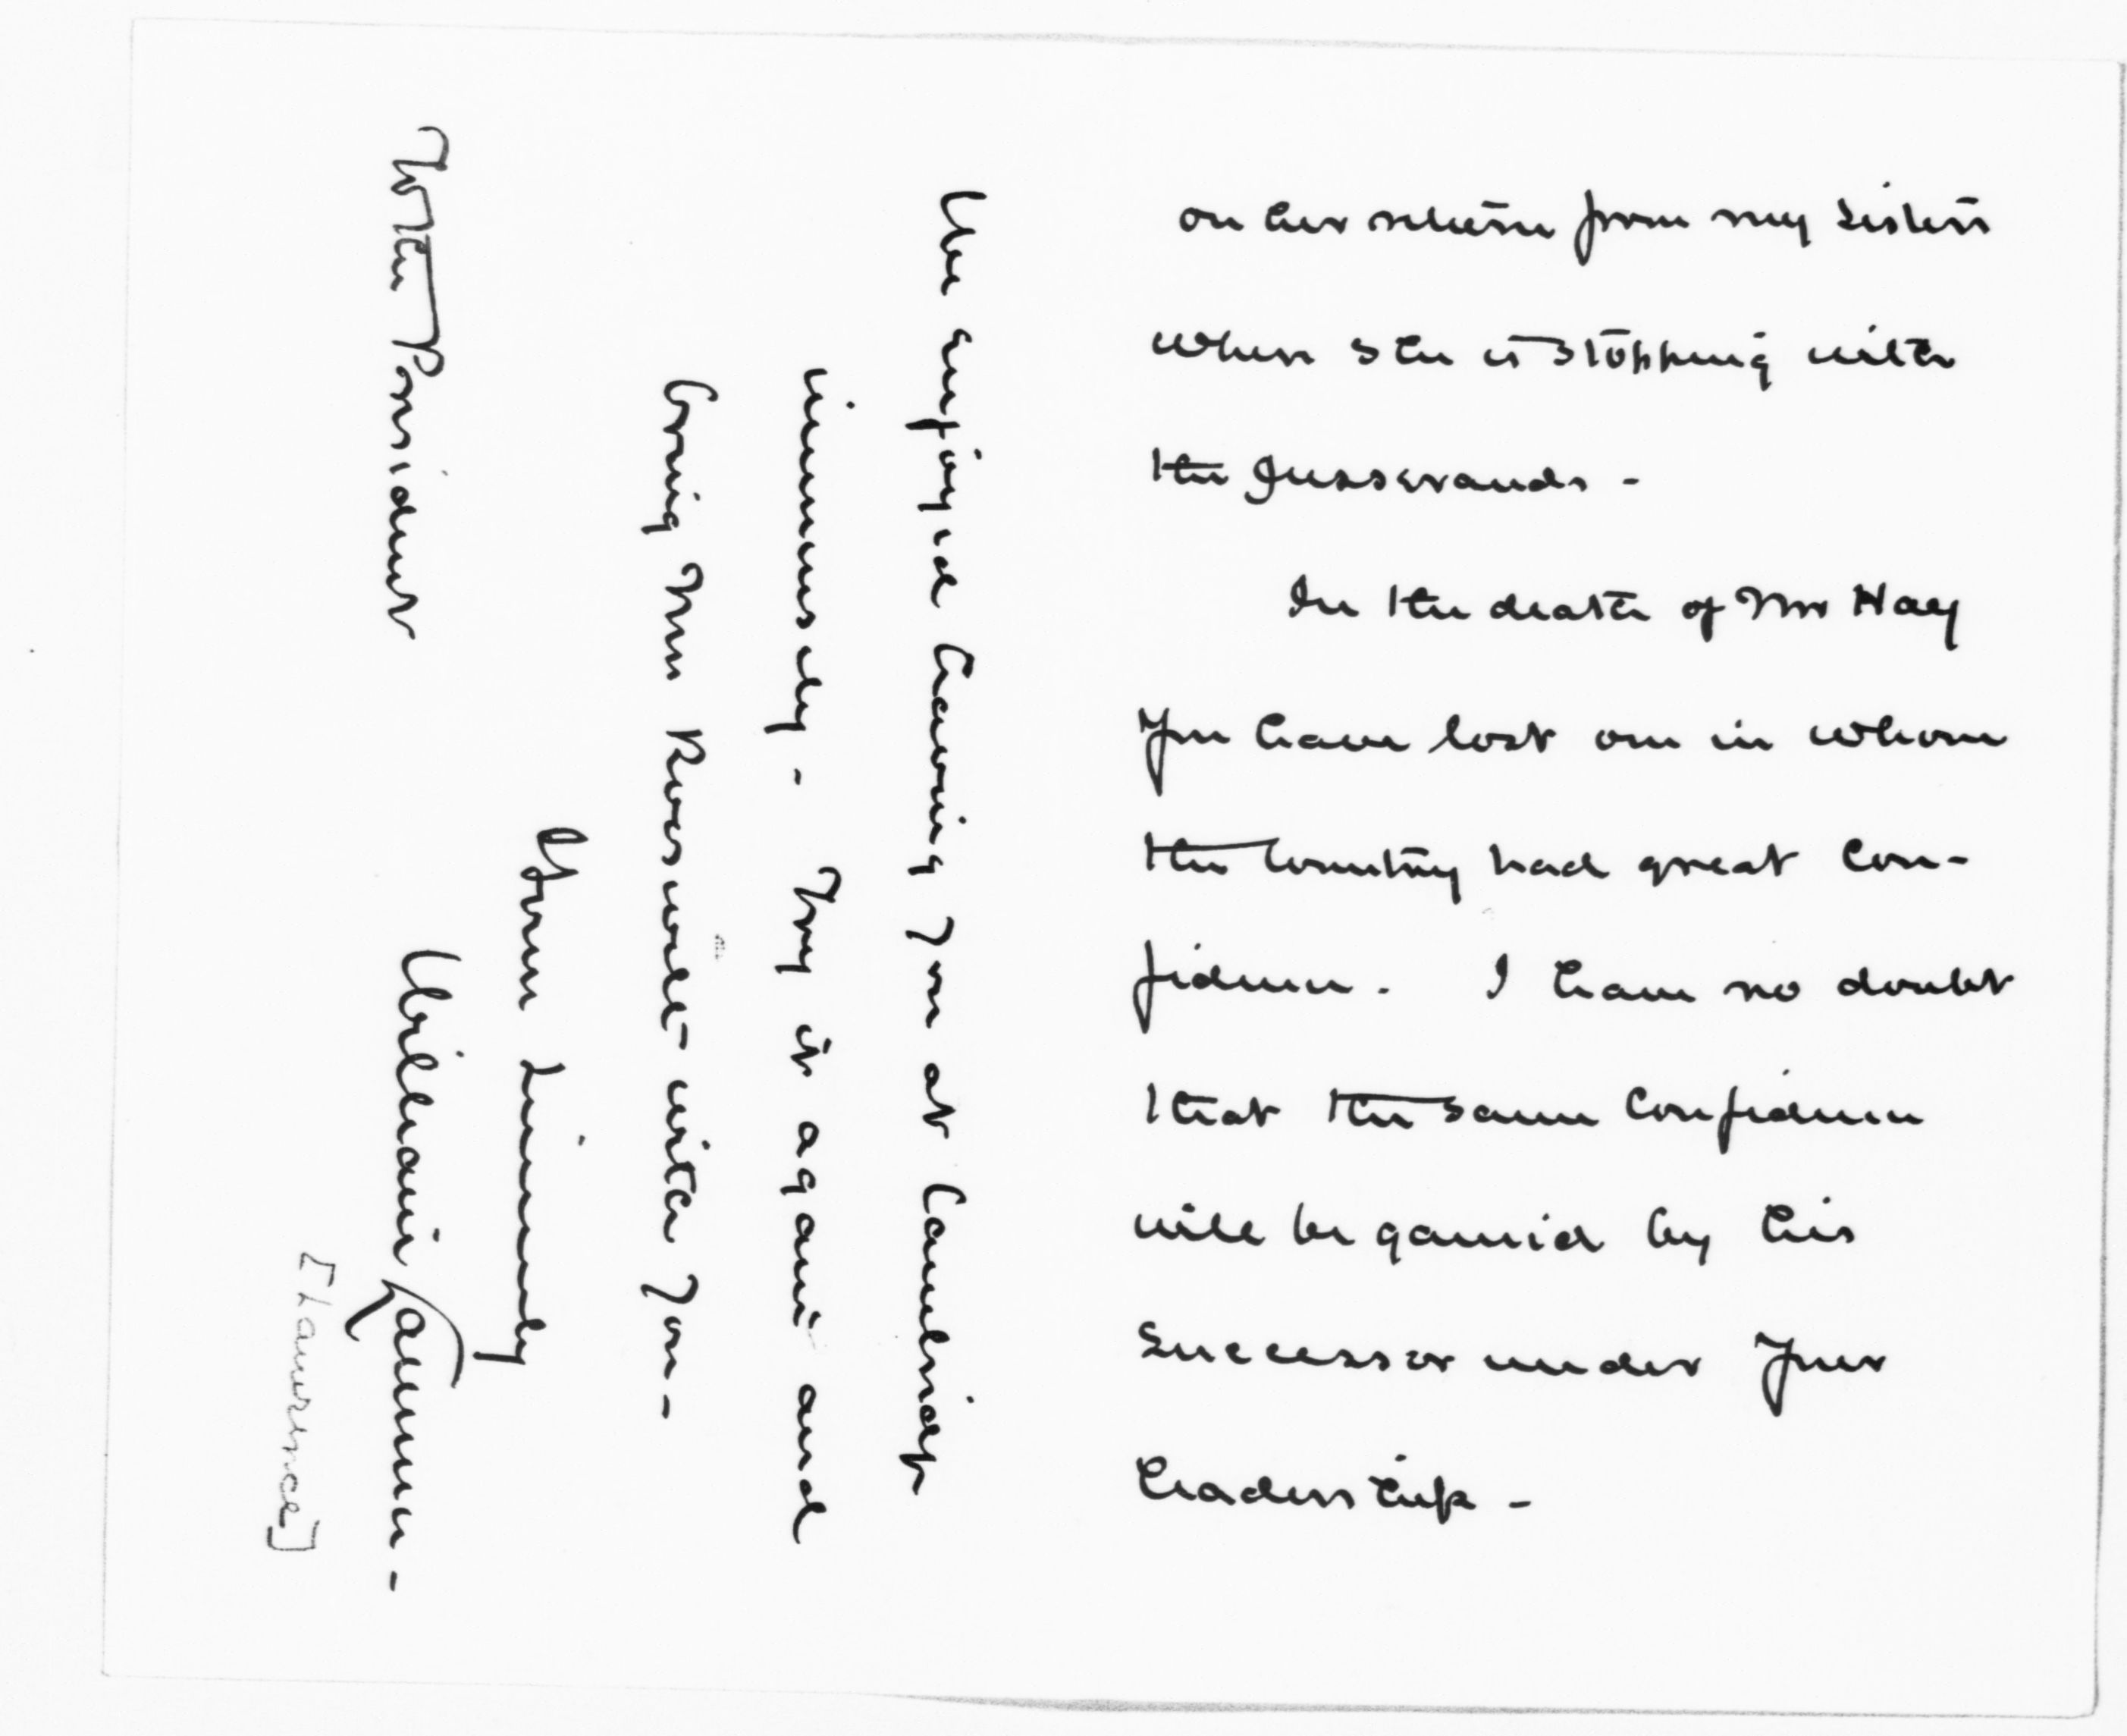 on her return from my sisters
where she is stopping with
the Jusserands -
In the death of Mr Hay
you have lost one in whom
the Country had great Con-
fidence. I have no doubt
that the same Confidence
will be gained by his
Successor under your
leadership -
We enjoyed having you at Cambridge
immensely - Try it again and
bring Mrs Roosevelt with you -
Yours Sincerely
William Lawrence -
[Lawrence]
To the President